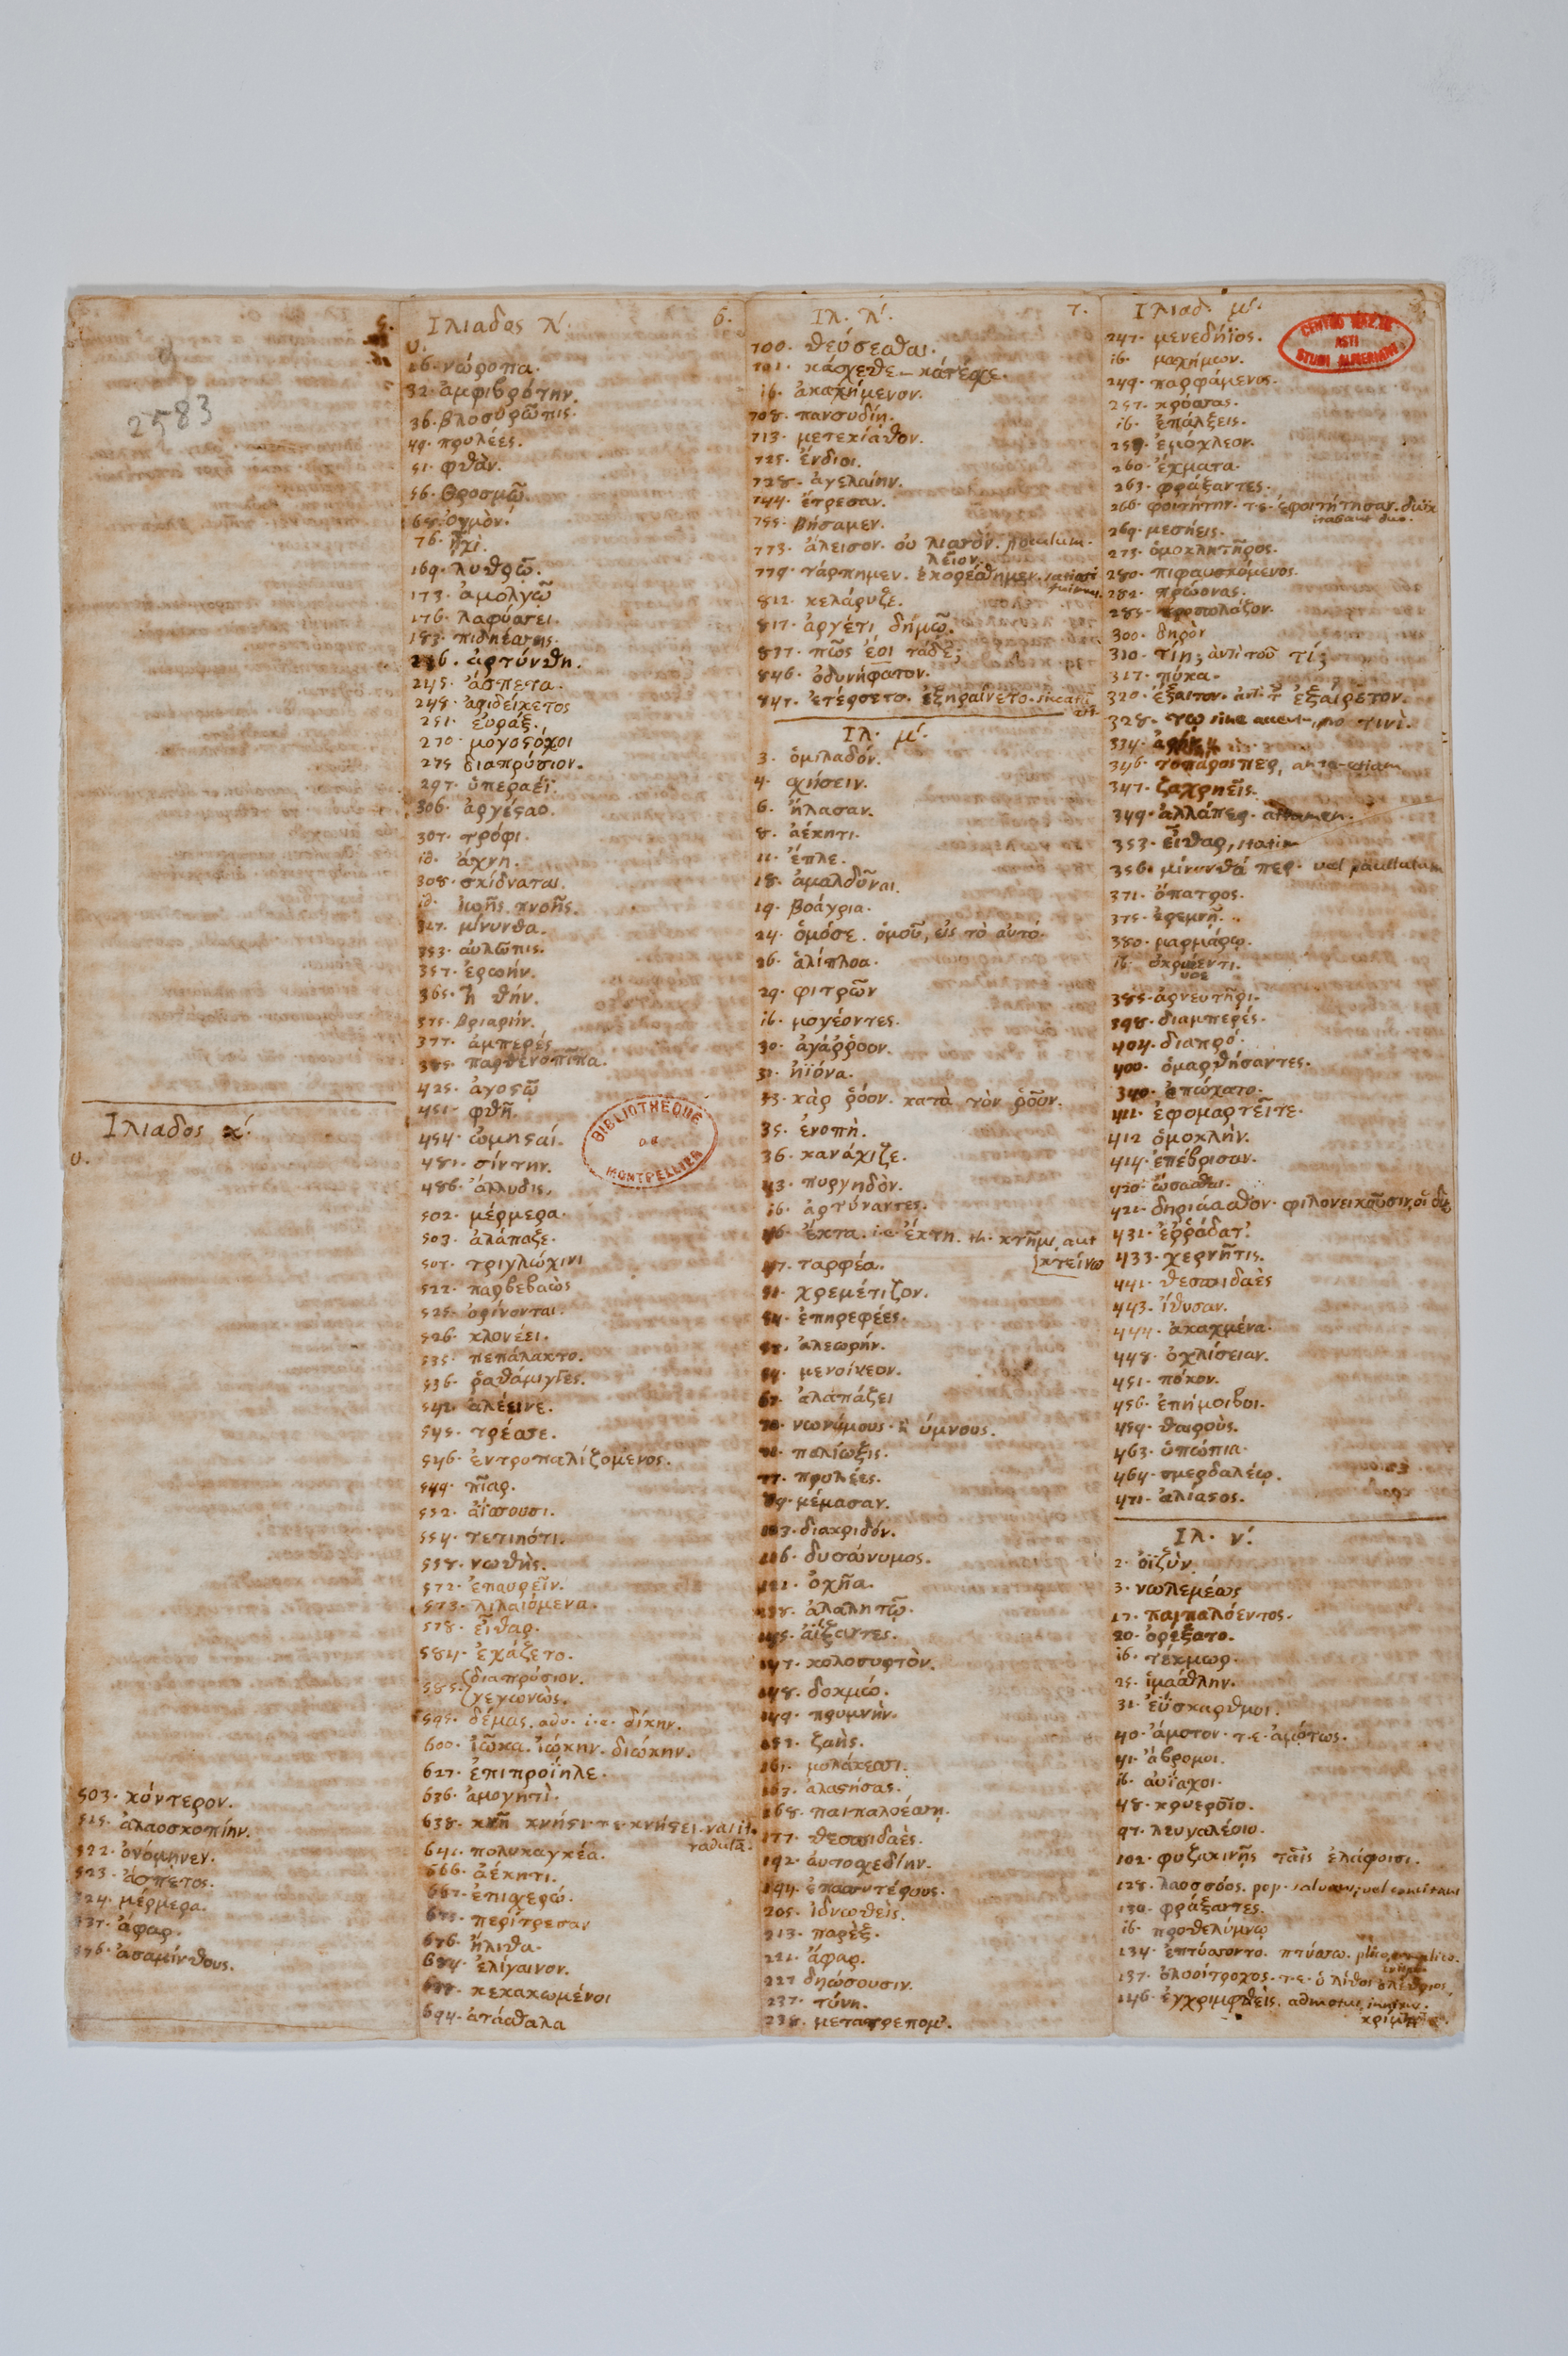 5.
2583
Ιλιαδος κ΄.
υ.
503. κύντερον.
515. ἀλαοσκοπίην.
522. ὀνόμηνεν.
523. ἄσπετος.
524. μέρμερα.
537. ἄφαρ.
576. ἀσαμίνθους.
Ιλιαδος λ΄. 6.
υ.
16. νώροπα.
32. ἀμφιβρότην.
36. βλοσυρῶπις.
49. πρυλέες.
51. φθὰν.
56. θρωσμῷ
68. ὄγμον.
76. ἧχι.
169. λυθρῷ.
173. ἀμολγῷ
176. λαφύσσει.
183. πιδηέσσης.
216. ἀρτύνθη.
245. ἄσπετα.
248. ἀριδείκετος
251. εὐράξ.
270. μογοστόκοι
275 διαπρύσιον.
297. ὑπεραέϊ.
306. ἀργέσταο.
307. τρόφι.
ib. ἄχνη.
308. σκίδναται.
ib. ἰωῆς. πνοῆς.
327. μίνυνθα.
353. αὐλῶπις.
357. ἐρωήν.
365. ἦ θήν.
375. βριαρήν.
377. ἀμπερές
385. παρθενοπῖπα.
425. ἀγοστῷ
451. φθῆ.
454. ὠμησταί.
481. σίντην.
486. ἄλλυδις.
502. μέρμερα.
503. ἀλάπαξε.
507. τριγλώχινι
522. παρβεβαὼς
525. ὀρίνονται.
526. κλονέει.
535. πεπάλακτο.
536. ῥαθάμιγγες.
542. ἀλέεινε.
545. τρέσσε.
546. ἐντροπαλιζόμενος.
549. πῖαρ.
552. ἀΐσσουσι.
554. τετιηότι.
558. νωθὴς.
572. ἐπαυρεῖν.
573. λιλαιόμενα.
578. εἶθαρ.
584. ἐχάζετο.
585. διαπρύσιον.
γεγωνὼς.
595. δέμας. αὐν. i.e. δίκην.
600. ἰῶκα. ἰώκην. διώκην.
627. ἐπιπροΐηλε.
636. ἀμογητὶ.
638. κνῆ
641. πολυκαγκέα.
666. ἀέκητι.
667. ἐπιχερώ.
673. περίτρεσαν
676. ἤλιθα.
684. ἐλίγαινον.
688. κεκακωμένοι
694. ἀτάσθαλα
Ιλ. λ΄. 7.
700. θεύσεσθαι.
701. κάσχεθε – κατέσχε.
ib. ἀκαχήμενον.
708. πανσυδίῃ.
713. μετεκίαθον.
725. ἔνδιοι.
728. ἀγελαίην.
744. ἔτρεσαν.
755. βήσαμεν.
773. ἄλεισον. οὐ λιαρὸν. poculum.
λεῖον.
779. τάρπημεν. ἐκορέσθημεν. satiati
fuimus.
812. κελάρυζε.
817. ἀργέτι δήμῳ.
837. πῶς ἔοι τάδε;
846. ὀδυνήφατον.
847. ἐτέρσετο. ἐξηραίνετο.
Ιλ. μ΄.
3. ὁμιλαδόν.
4. σχήσειν.
6. ἤλασαν.
8. ἀέκητι.
11. ἔπλε.
18. ἀμαλδῦναι.
19. βοάγρια.
24. ὁμόσε. ὁμοῦ, εἰς τὸ αὐτό.
26. ἁλίπλοα.
29. φιτρῶν
ib. μογέοντες.
30. ἀγάῤῥοον.
31. ἠϊόνα.
33. κὰρ ῥόον. κατὰ τὸν ῥοῦν.
35. ἐνοπὴ.
36. κανάχιζε.
43. πυργηδὸν.
ib. ἀρτύναντες.
46. ἔκτα. i.e. ἔκτη. th. κτῆμι, aut
κτείνω
47. ταρφέα.
51. χρεμέτιζον.
54. ἐπηρεφέες.
57. ἀλεωρήν.
59. μενοίνεον.
67. ἀλαπάζει
70. νωνύμους. ὕμνους.
71. παλίωξις.
77. πρυλέες.
89. μέμασαν.
103. διακριδόν.
116. δυσώνυμος.
121. ὀχῆα.
138. ἀλαλητῷ.
145. ἀΐξαντες.
147. κολοσυρτὸν.
148. δοχμώ.
149. πρυμνὴν.
157. ζαὴς.
161. μυλάκεσσι.
163. ἀλαστήσας.
168. παιπαλοέσσῃ.
177. θεσπιδαὲς.
192. αὐτοσχεδίην.
194. ἐπασσυτέρους.
205. ἰδνωθεὶς.
213. παρὲξ.
221. ἄφαρ.
227 δῃώσουσιν.
237. τύνη.
238. μετατρέπομ᾽.
Ιλιαδ. μ΄.
247. μενεδήϊος.
ib. μαχήμων.
249. παρφάμενος.
257. κρόσσας.
ib. ἐπάλξεις.
259. ἐμόχλεον.
260. ἔχματα.
263. φράξαντες.
266. φοιτήτην. τ.ε. ἐφοιτήτησαν. δυϊκ
itabant duo.
269. μεσήεις.
273. ὁμοκλητῆρος.
280. πιφαυσκόμενος.
282. πρώονας.
285. προσπλάζον.
300. δηρὸν
310. τίη; ἀντὶ τοῦ τί;
317. πύκα.
320. ἔξαιτον. ἀντ. τ ἐξαίρετον.
328. τῳ sine accent. pro τινὶ.
334.
346. τοπάροιπερ, antea etiam
347. ζαχρηεῖς.
349. ἀλλάπερ. attamen.
353. εἶθαρ, statim
356. μίνυνθά περ. vel paullulum
371. ὄπατρος.
375. ἐρεμνῇ.
380. μαρμάρῳ.
ib. ὀκριόεντι.
385. ἀρνευτῆρι.
398. διαμπερές.
404. διαπρό.
400. ὁμαρτήσαντες.
340. ἐπῴχατο.
412. ἐφομαρτεῖτε.
412 ὁμοκλὴν.
414. ἐπέβρισαν.
420. ὤσασθαι.
421. δηριάασθον. φιλονεικοῦσιν, οἱ δύο
431. ἐῤῥάδατ᾽.
433. χερνῆτις.
441. θεσπιδαὲς
443. ἴθυσαν.
444. ἀκαχμένα.
448. ὀχλίσειαν.
451. πόκον.
456. ἐπήμοιβοι.
459. θαιροὺς.
463. ὑπώπια.
464. σμερδαλέῳ.
471. ἀλίαστος.
Ιλ. ν΄.
2. ὀϊζὺν.
3. νωλεμέως
17. παιπαλόεντος.
20. ὀρέξατο.
ib. τέκμωρ.
25. ἱμάσθλην.
31. ἐΰσκαρθμοι.
40. ἄμοτον. τ.ε. ἀμότως.
41. ἄβρομοι.
ib. αὐΐαχοι.
48. κρυεροῖο.
97. λευγαλέοιο.
102. φυζακινῇς ταῖς ἐλάφοισι.
128. λαοσσόος. pop. salvans, vel concitans
130. φράξαντες.
ib. προθελύμνῳ
134. ἐπτύσσοντο. πτύσσω. plico
137. ὀλοοίτροχος. τ.ε. ὁ λίθος ὀλέθριος,
146. ἐγχριμφθεὶς. admotus
CENTRO NAZ.LE
ASTI
STUDI ALFIERIANI
BIBLIOTHEQUE
DE
MONTPELLIER